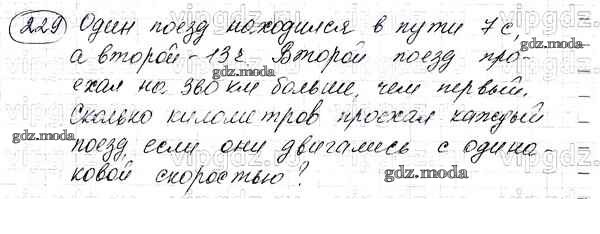 229 Один поезд находился в пути 7 с,
а второй - 13 ч. Второй поезд про-
ехал на 360 км больше, чем первый.
Сколько километров проехал каждый
поезд, если они двигались с одина-
ковой скоростью?
vipgdz.ru
gdz.moda